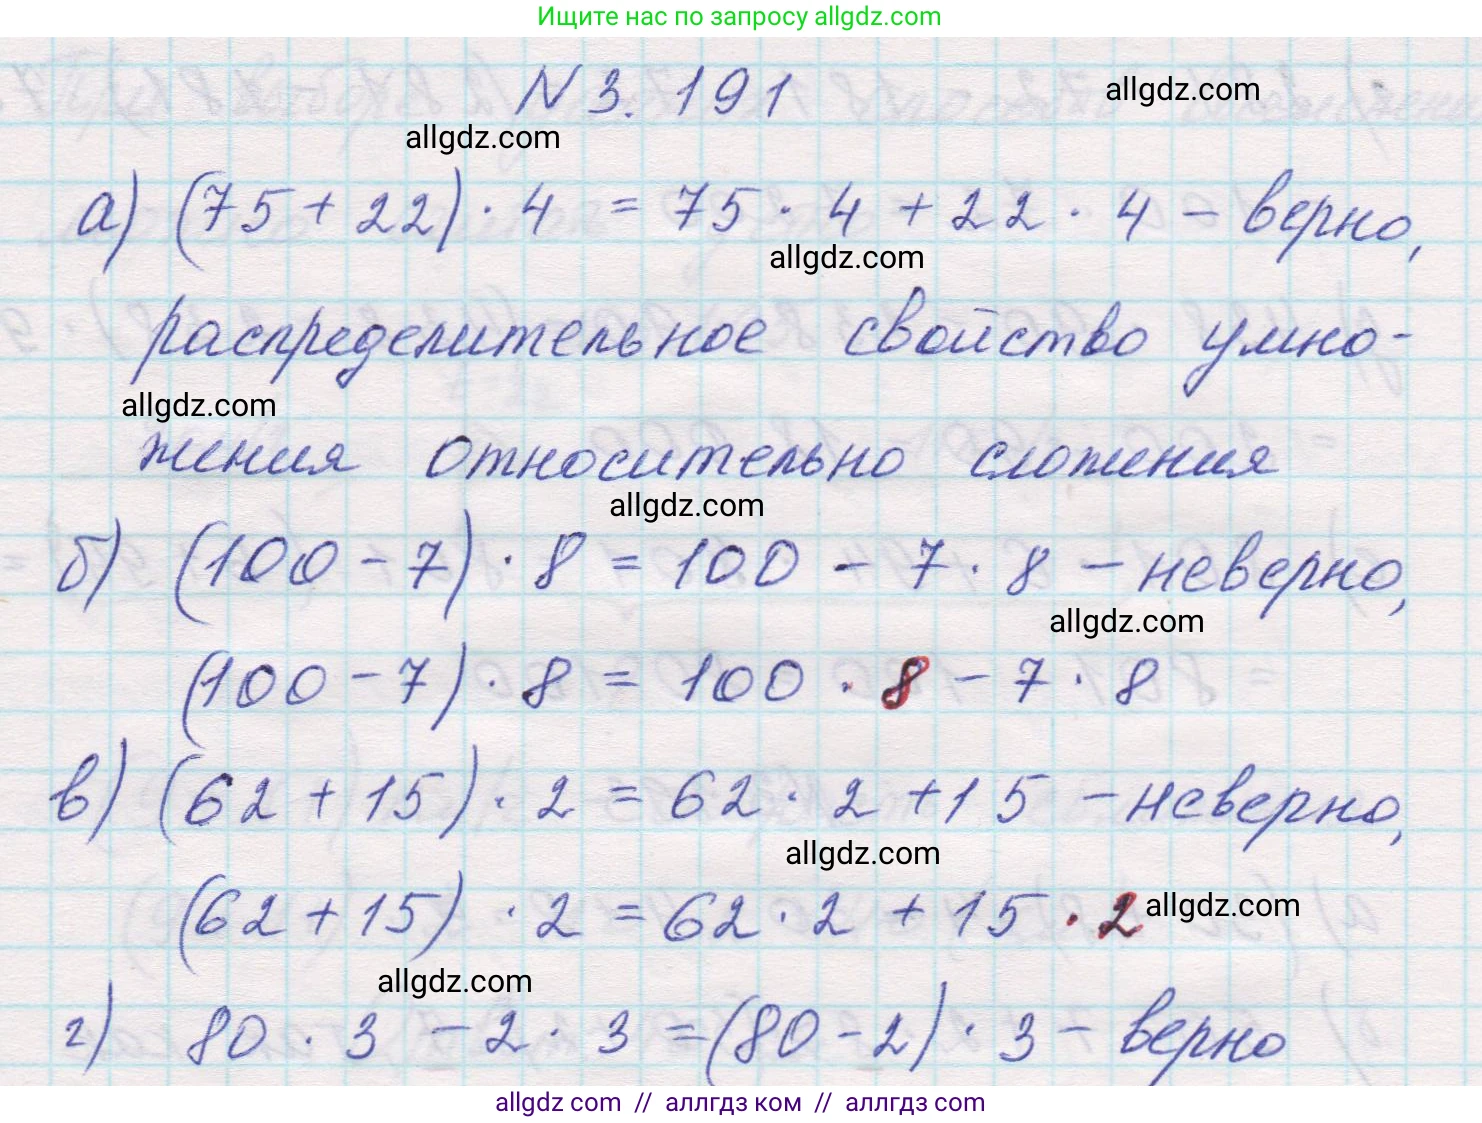 Ищите нас по запросу allgdz.com
N 3.191
allgdz.com
allgdz.com
а) (75 + 22) · 4 = 75 · 4 + 22 · 4 – верно,
allgdz.com
распределительное свойство умно-
allgdz.com
жения относительно сложения
allgdz.com
б) (100 – 7) · 8 = 100 – 7 · 8 – неверно,
allgdz.com
(100 – 7) · 8 = 100 · 8 – 7 · 8
в) (62 + 15) · 2 = 62 · 2 + 15 – неверно,
allgdz.com
(62 + 15) · 2 = 62 · 2 + 15 · 2
allgdz.com
allgdz.com
г) 80 · 3 – 2 · 3 = (80 – 2) · 3 – верно
allgdz com // аллгдз ком // аллгдз com